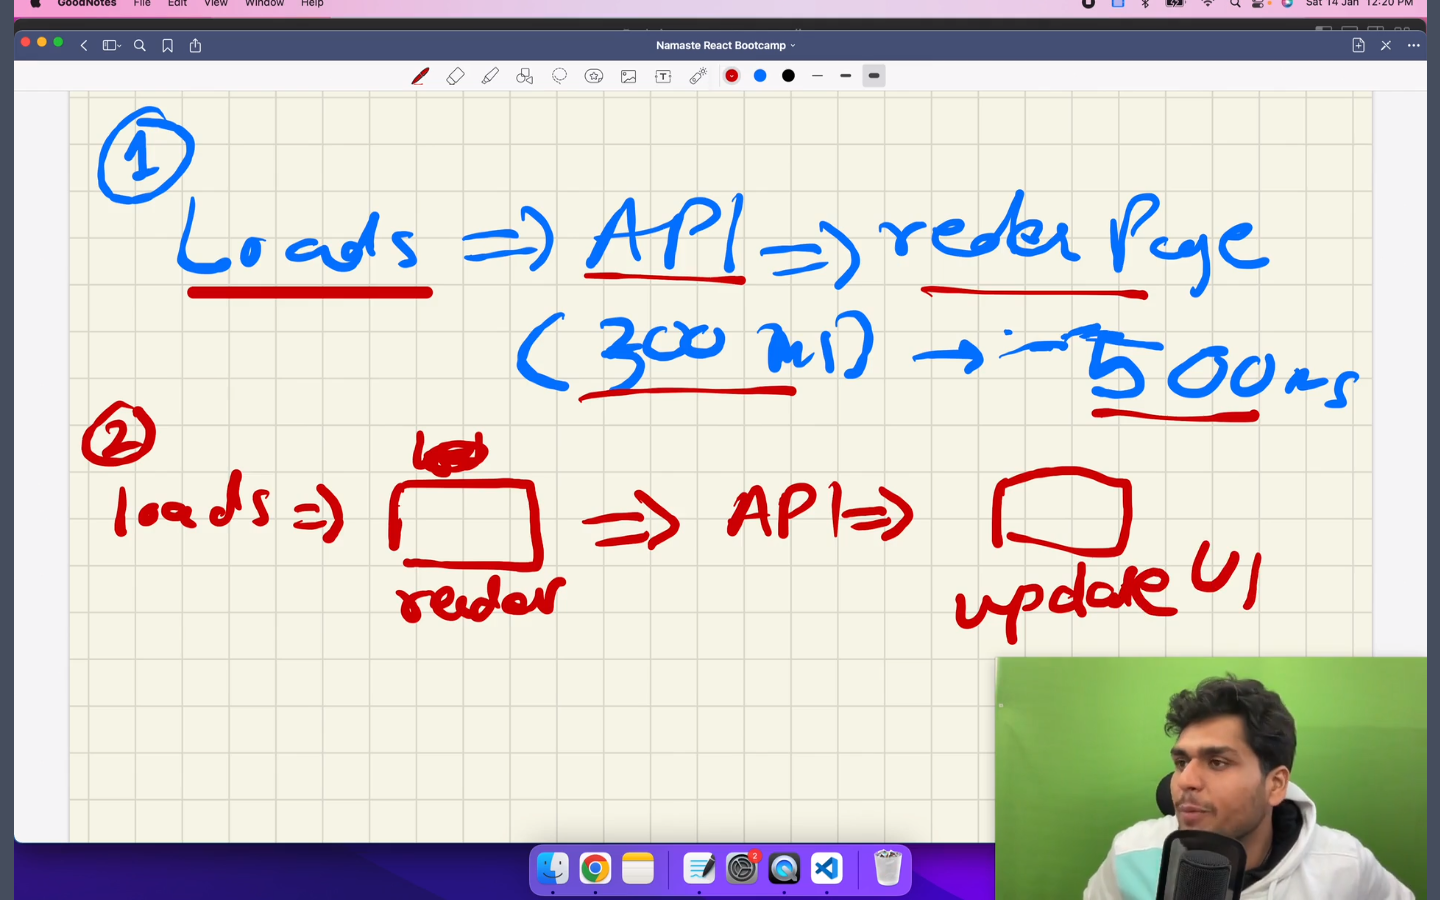 GoodNotes File Edit View Window Help Sat 14 Jan 12:20 PM
Namaste React Bootcamp
T
1
Loads => API => reder Page
(300 ms) → 500 ms
2
loads => => API =>
render update UI
2